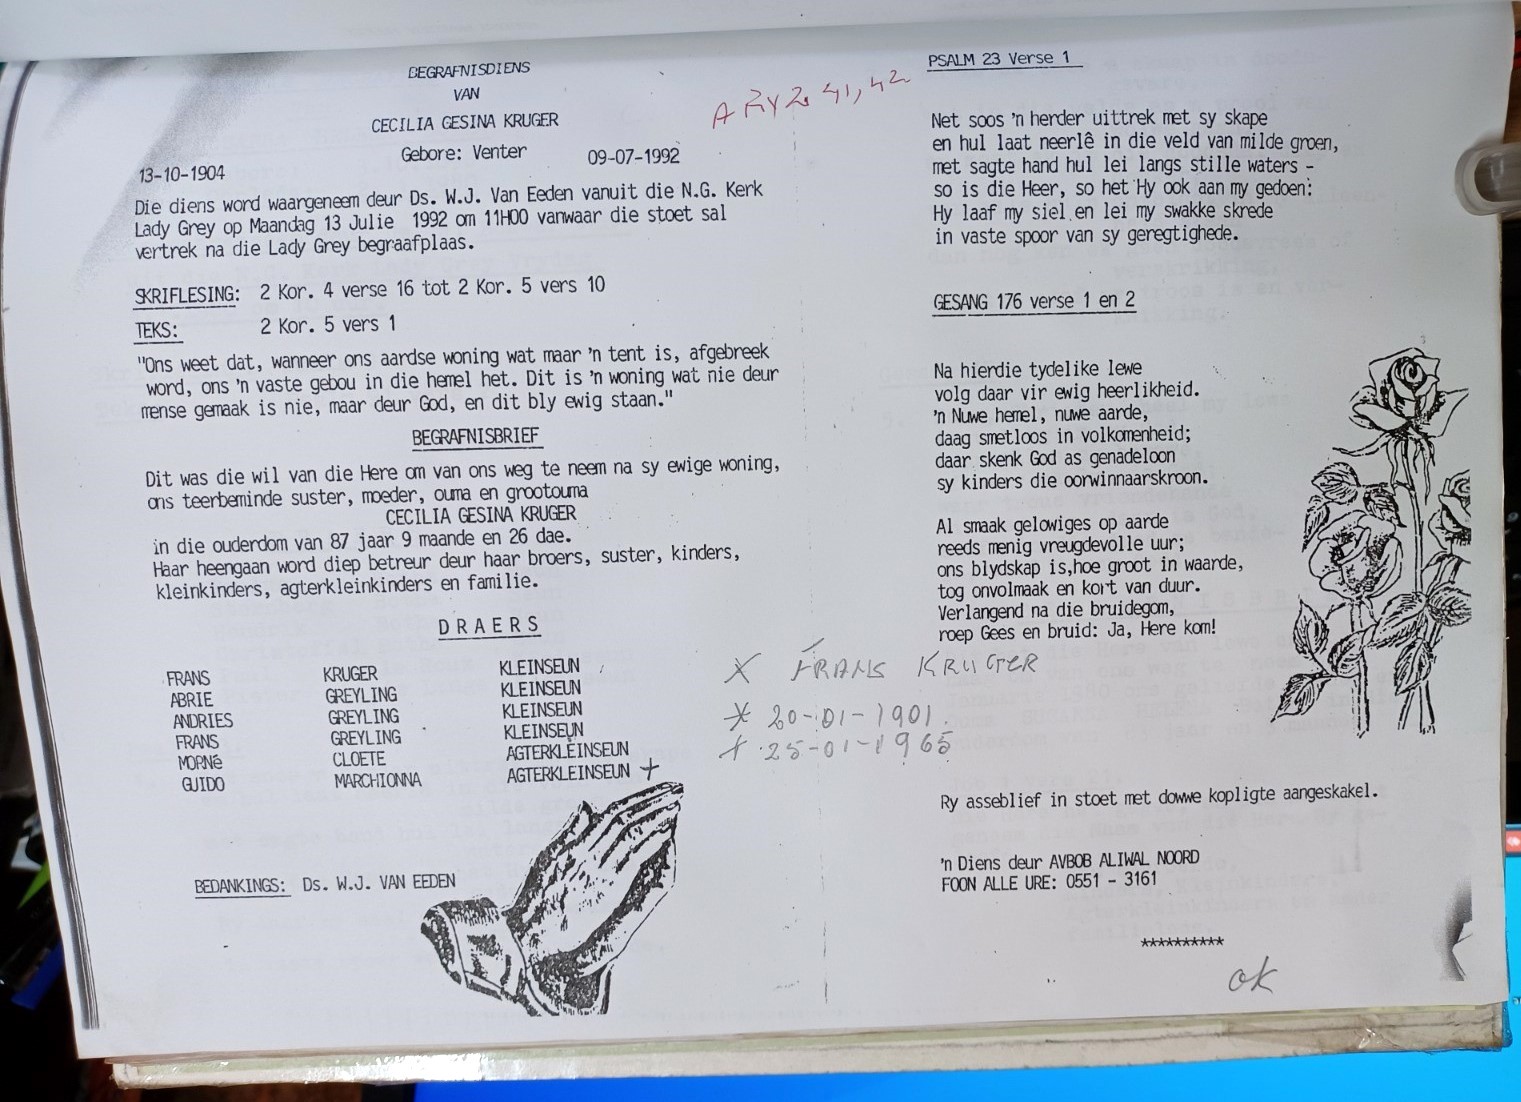 BEGRAFNISDIENS
VAN
CECILIA GESINA KRUGER
Gebore: Venter
13-10-1904 09-07-1992
Die diens word waargeneem deur Ds. W.J. Van Eeden vanuit die N.G. Kerk
Lady Grey op Maandag 13 Julie 1992 om 11H00 vanwaar die stoet sal
vertrek na die Lady Grey begraafplaas.
SKRIFLESING: 2 Kor. 4 verse 16 tot 2 Kor. 5 vers 10
TEKS: 2 Kor. 5 vers 1
"Ons weet dat, wanneer ons aardse woning wat maar 'n tent is, afgebreek
word, ons 'n vaste gebou in die hemel het. Dit is 'n woning wat nie deur
mense gemaak is nie, maar deur God, en dit bly ewig staan."
BEGRAFNISBRIEF
Dit was die wil van die Here om van ons weg te neem na sy ewige woning,
ons teerbeminde suster, moeder, ouma en grootouma
CECILIA GESINA KRUGER
in die ouderdom van 87 jaar 9 maande en 26 dae.
Haar heengaan word diep betreur deur haar broers, suster, kinders,
kleinkinders, agterkleinkinders en familie.
DRAERS
FRANS KRUGER KLEINSEUN
ABRIE GREYLING KLEINSEUN
ANDRIES GREYLING KLEINSEUN
FRANS GREYLING KLEINSEUN
MORNé CLOETE AGTERKLEINSEUN
GUIDO MARCHIONNA AGTERKLEINSEUN +
BEDANKINGS: Ds. W.J. VAN EEDEN
41, 42
PSALM 23 Verse 1
Net soos 'n herder uittrek met sy skape
en hul laat neerlê in die veld van milde groen,
met sagte hand hul lei langs stille waters -
so is die Heer, so het Hy ook aan my gedoen:
Hy laaf my siel en lei my swakke skrede
in vaste spoor van sy geregtighede.
GESANG 176 verse 1 en 2
Na hierdie tydelike lewe
volg daar vir ewig heerlikheid.
'n Nuwe hemel, nuwe aarde,
daag smetloos in volkomenheid;
daar skenk God as genadeloon
sy kinders die oorwinnaarskroon.
Al smaak gelowiges op aarde
reeds menig vreugdevolle uur;
ons blydskap is,hoe groot in waarde,
tog onvolmaak en kort van duur.
Verlangend na die bruidegom,
roep Gees en bruid: Ja, Here kom!
X FRANS KRUGER
* 20-01-1901.
+ 25-01-1965
Ry asseblief in stoet met dowwe kopligte aangeskakel.
'n Diens deur AVBOB ALIWAL NOORD
FOON ALLE URE: 0551 - 3161
**********
ok